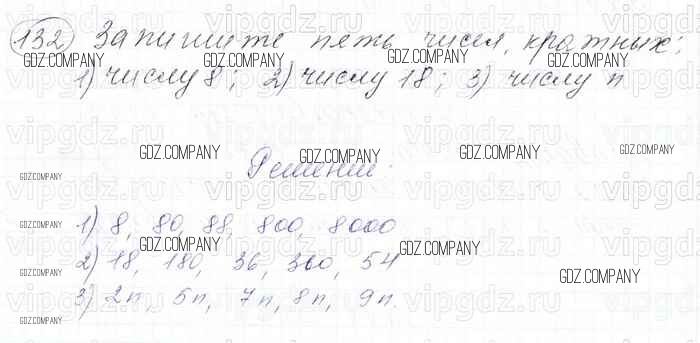 132 Запишите пять чисел, кратных:
1) числу 8; 2) числу 18; 3) числу n
Решение.
1) 8, 80, 88, 800, 8000
2) 18, 180, 36, 360, 54
3) 2n, 5n, 7n, 8n, 9n.
GDZ.COMPANY
vipgdz.ru